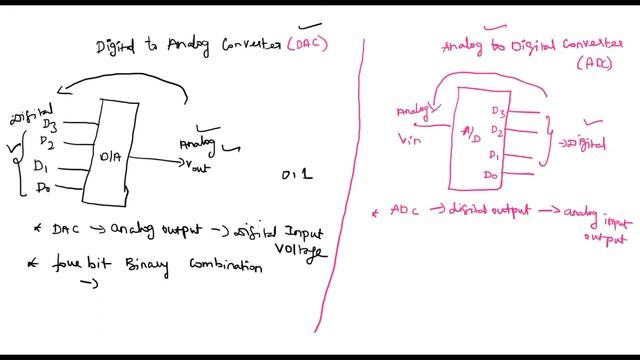 Digital to Analog Converter (DAC)
Digital
D3
D2
D1
D0
D/A
Analog
Vout
0, 1
* DAC → analog output → Digital Input
Voltage
* four bit Binary Combination
→
Analog to Digital Converter
(ADC)
Analog
Vin
A/D
D3
D2
D1
D0
→ Digital
* ADC → digital output → analog input
output